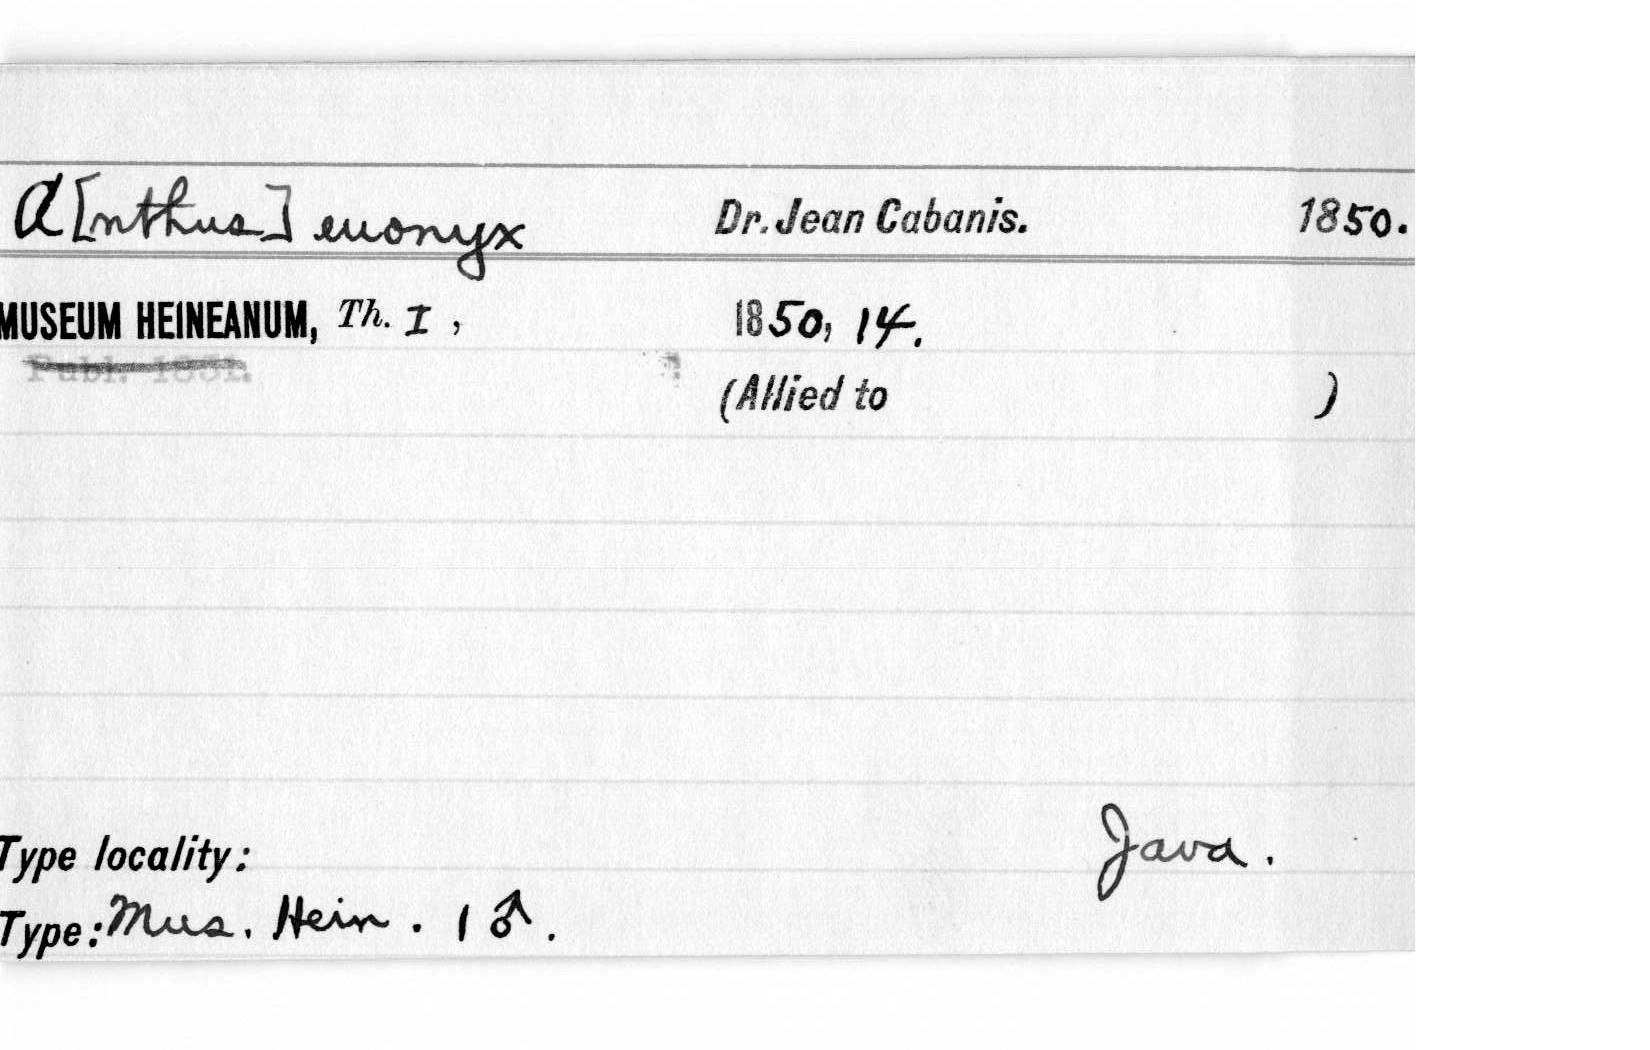 A[nthus] euonyx Dr. Jean Cabanis. 1850.
MUSEUM HEINEANUM, Th. I, 1850, 14.
Publ. 1851.
(Allied to )
Type locality: Java.
Type: Mus. Hein. 1 ♂.